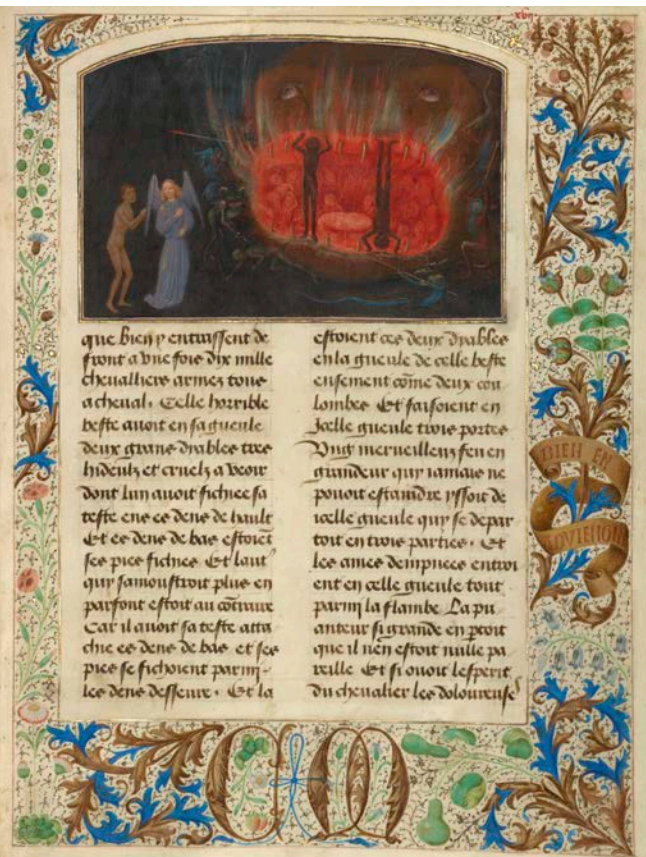 xvii
que bien y entrassent de
front a vne fois dix mille
cheualliers armez tous
a cheual. Celle horrible
beste auoit en sa gueule
deux grans dyables tres
hideulz et cruelz a veoir
dont lun auoit fichiee sa
teste ens es dens de hault
Et es dens de bas estoiēt
ses pies fichies Et laut᷒
quy samonstroit plus en
parfont estoit au cōtraire
Car il auoit sa teste atta
chie es dens de bas et ses
pies se fichoient parmy
les dens desseure. Et la
estoient ces deux dyables
en la gueule de celle beste
ensement cōme deux cou
lombes Et faisoient en
Icelle gueule trois portes
Vng merueilleux feu en
grandeur quy iamais ne
pouoit estaindre yssoit de
icelle gueule quy se depar
toit en trois parties. Et
les ames dempnees entroi
ent en celle gueule tout
parmi la flambe La pu
anteur si grande en yssoit
que il nen estoit nulle pa
reille Et si ouoit lesperit
du cheualier les doloureuses
BIEN EN
ADVIENGNE
C M